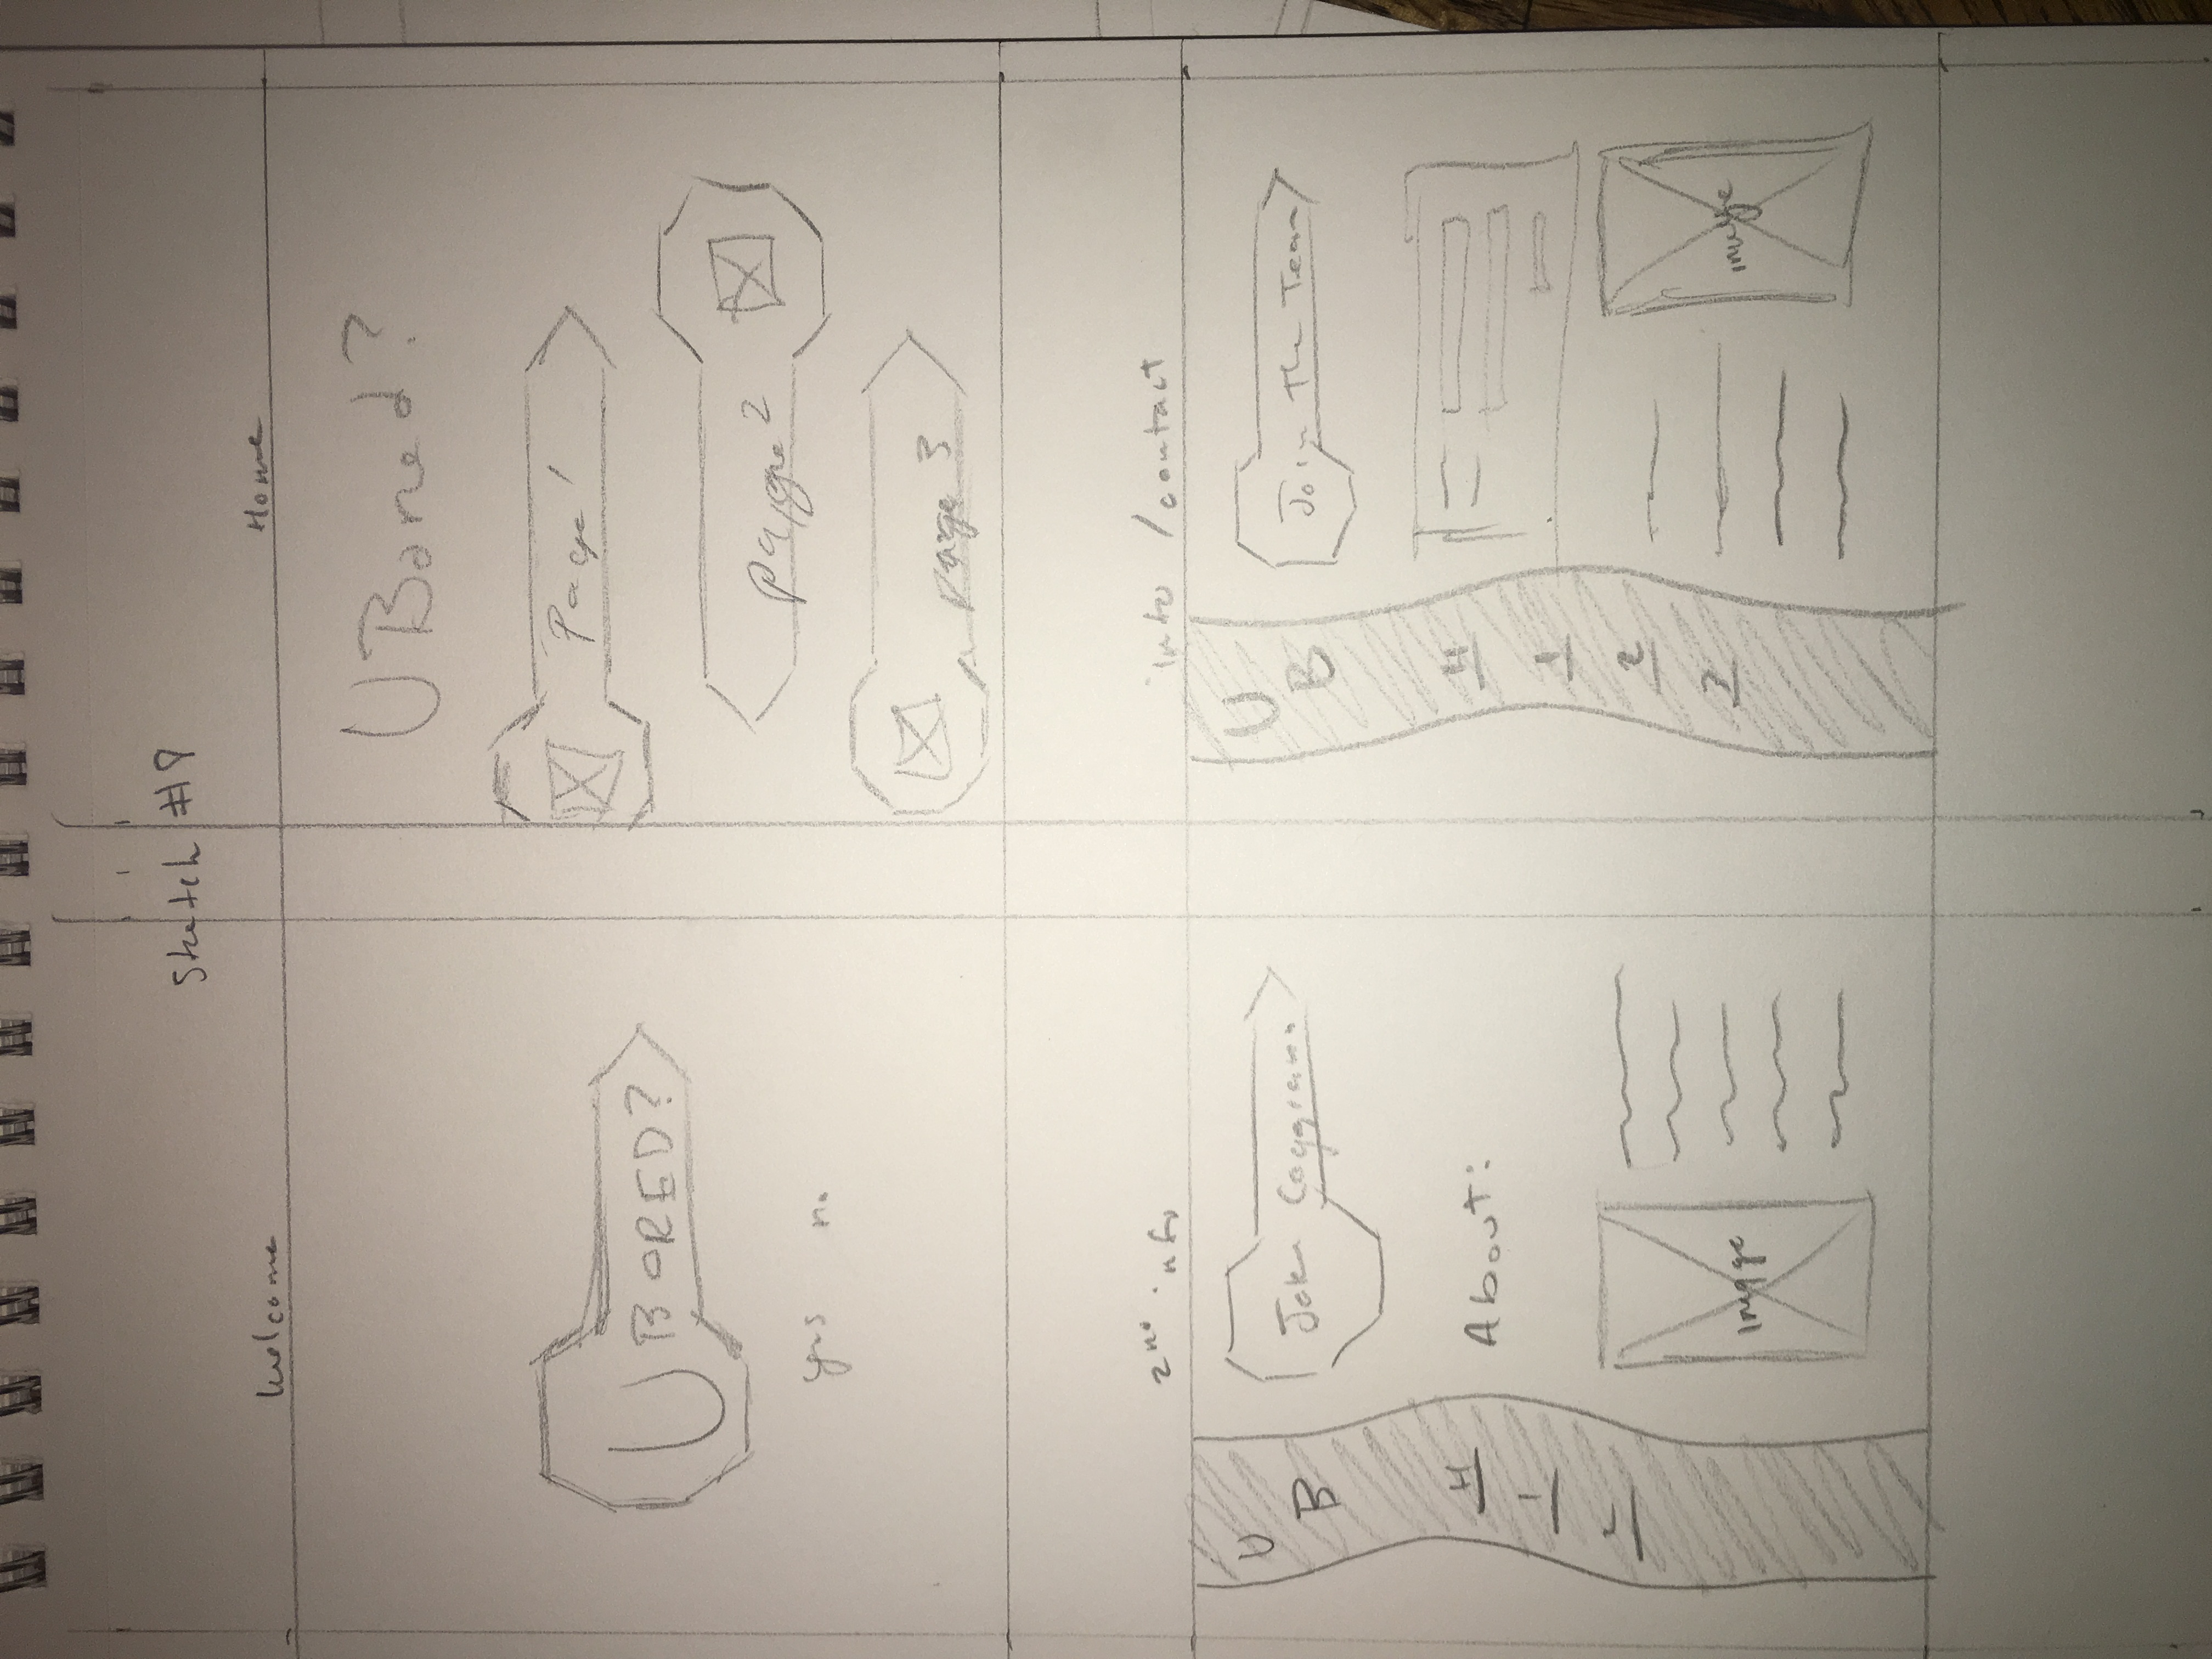 Sketch #8
Welcome
Home
U BORED?
yes no
U Bored?
Page 1
page 2
page 3
2nd info
U
B
H
1
2
Jake
About:
image
info / contact
U
B
H
1
2
3
Join The Team
image